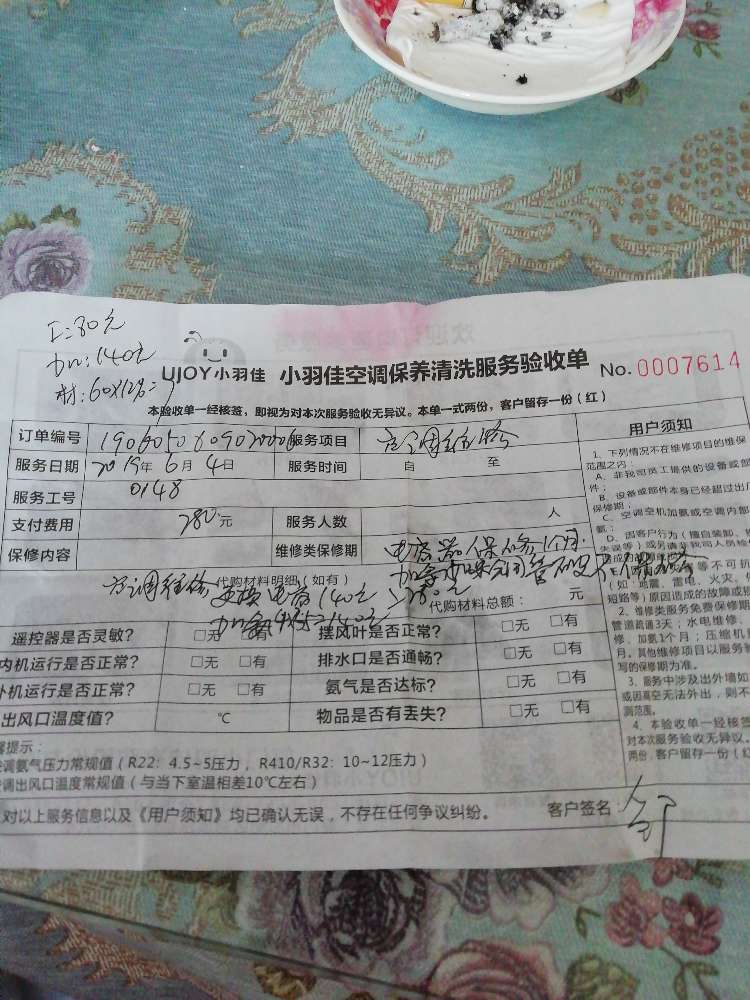 工:80元
加:140元
材:60X12%=)
UJOY小羽佳 小羽佳空调保养清洗服务验收单 No.0007614
本验收单一经核签，即视为对本次服务验收无异议。本单一式两份，客户留存一份（红）
订单编号 服务项目 空调维修
服务日期 2019年6月4日 服务时间 自 至
服务工号 0148
支付费用 280元 服务人数 人
保修内容 维修类保修期 电容器保修1个月.
空调维修 代购材料明细（如有）
更换电容140元
280元
代购材料总额： 元
遥控器是否灵敏? □无 □有 摆风叶是否正常? □无 □有
内机运行是否正常? □无 □有 排水口是否通畅? □无 □有
外机运行是否正常? □无 □有 氨气是否达标? □无 □有
出风口温度值? ℃ 物品是否有丢失? □无 □有
提示：
调氨气压力常规值（R22：4.5~5压力，R410/R32：10~12压力）
调出风口温度常规值（与当下室温相差10℃左右）
对以上服务信息以及《用户须知》均已确认无误，不存在任何争议纠纷。 客户签名:
用户须知
1、下列情况不在维修项目的维保
范围之内：
A、非我司员工提供的设备或部
件；
B、设备或部件本身已经超过出厂
保修期；
C、空调空机加氨或空调内部
氨；
D、因客户行为（擅自装卸、
等不可抗
（如：地震、雷电、火灾、
短路等）原因造成的故障或损
2、维修类服务免费保修期
管道疏通3天；水电维修、
修、加氨1个月；压缩机
月。其他维修项目以服务
写的保修期为准。
3、服务中涉及出外墙如
或因高空无法外出，则不
测范围。
4、本验收单一经核签
对本次服务验收无异议。
两份，客户留存一份（红